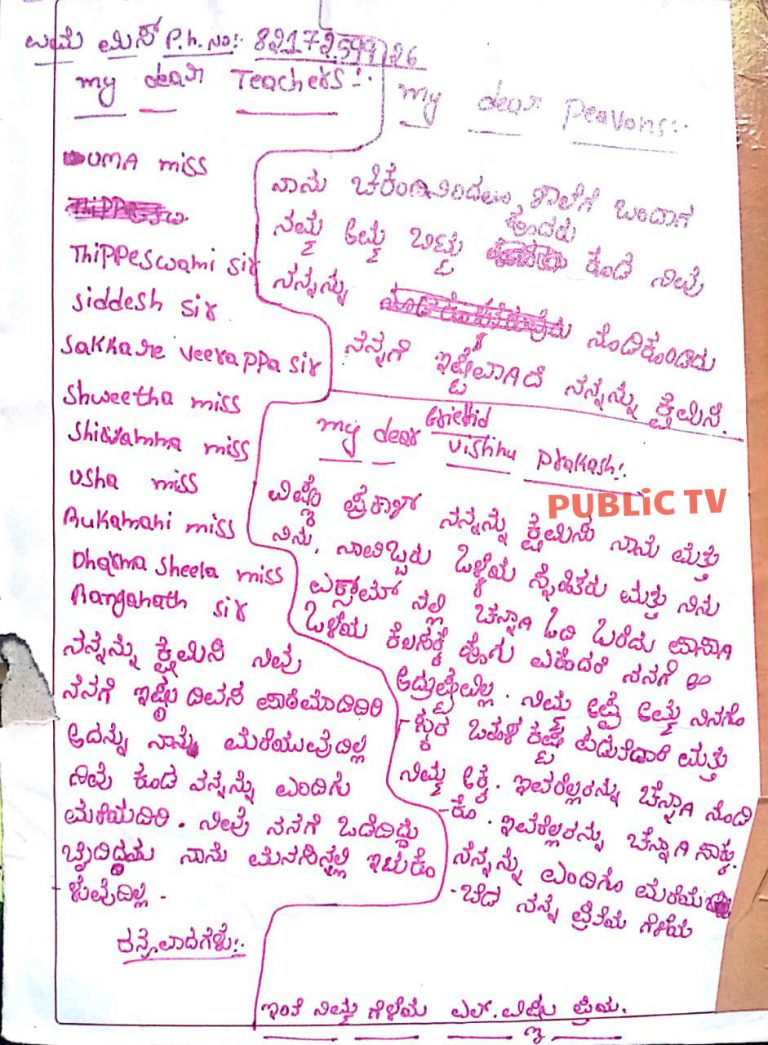 ಉಮೆ ಮಿಸ್ P.h. no:- 8217259926
my dear Teachers:-
UMA miss
Thippeswami sir
siddesh sir
sakhare veerappa sir
shweetha miss
shivamma miss
usha miss
Rukamani miss
Dharma sheela miss
Ranganath sir
ನನ್ನನ್ನು ಕ್ಷೆಮಿಸಿ ನಿವು
ನೆನಗೆ ಇಷ್ಟು ದಿವಸ ಪಾಠಮಾಡಿದಿರಿ
ಅದನ್ನು ನಾನು ಮರೆಯುವುದಿಲ್ಲಿ
ನಿವು ಕೂಡ ನನ್ನನ್ನು ಎಂದಿಗು
ಮರೆಯದಿರಿ. ನೀವು ನನಗೆ ಒಡೆದಿದ್ದು
ಬೈದಿದ್ದಯ ನಾನು ಮನಸಿನ್ನಲ್ಲಿ ಇಟುಕೊ
- ಳುವುದಿಲ್ಲ.
ದನ್ಯೆವಾದಗಳು:-
my dear peavons:-
ನಾನು ಶಾಲೆಗೆ ಬಂದಾಗ
ನಮ್ಮ ಅಮ್ಮ ಬಿಟ್ಟು ಹೊಂದರು ಕೂಡ ನಿವು
ನನ್ನನ್ನು ನೊಡಿಕೊಂಡಿರು
ನೆನ್ನಗೆ ಇಷ್ಟೆವಾಗಿದೆ ನನ್ನನ್ನು ಕ್ಷೆಮಿಸಿ.
my dear Griethid vishnu prakash:-
ವಿಷ್ಣು ಪ್ರೆಕಾಶ್ ನನ್ನನ್ನು ಕ್ಷೆಮಿಸಿ ನಾನು ಮತ್ತು
ನಿನು. ನಾವಿಬ್ಬರು ಒಳ್ಳೆಯ ಸ್ನೇಹಿತರು ಮತ್ತು ನಿನು
ಎಕ್ಸಾಮ್ ನಲ್ಲಿ ಚೆನ್ನಾಗಿ ಓದಿ ಬರೆದು ಪಾಸಾಗಿ
ಒಳೆಯ ಕೆಲಸಕ್ಕೆ ಹೊಗು ಎಕೆಂದರೆ ನನಗೆ ಆ
ಅದ್ರುಷ್ಟೆವಿಲ್ಲ. ನಿಮ್ಮ ಅಪ್ಪ ಅಮ್ಮ ನಿನಗೊ
- ಸ್ಕರ ಬಹಳ ಕಷ್ಟ ಪಡುತಿದಾರೆ ಮತ್ತು
ನಿಮ್ಮ ಅಕ್ಕ. ಇವರೆಲ್ಲರನ್ನು ಚೆನ್ನಾಗಿ ನೊಡಿ
- ಕೊ. ಇವರೆಲ್ಲರನ್ನು ಚೆನ್ನಾಗಿ ಸಾಕು.
ನೆನ್ನನ್ನು ಎಂದಿಗೂ ಮರೆಯ
- ಬೆಡ ನನ್ನ ಪ್ರಿತಿಯ ಗೆಳೆಯ
ಇಂತಿ ನಿಮ್ಮ ಗೆಳೆಯ ಎಲ್. ವಿಷ್ಣು ಪ್ರಿಯ.
PUBLiC TV